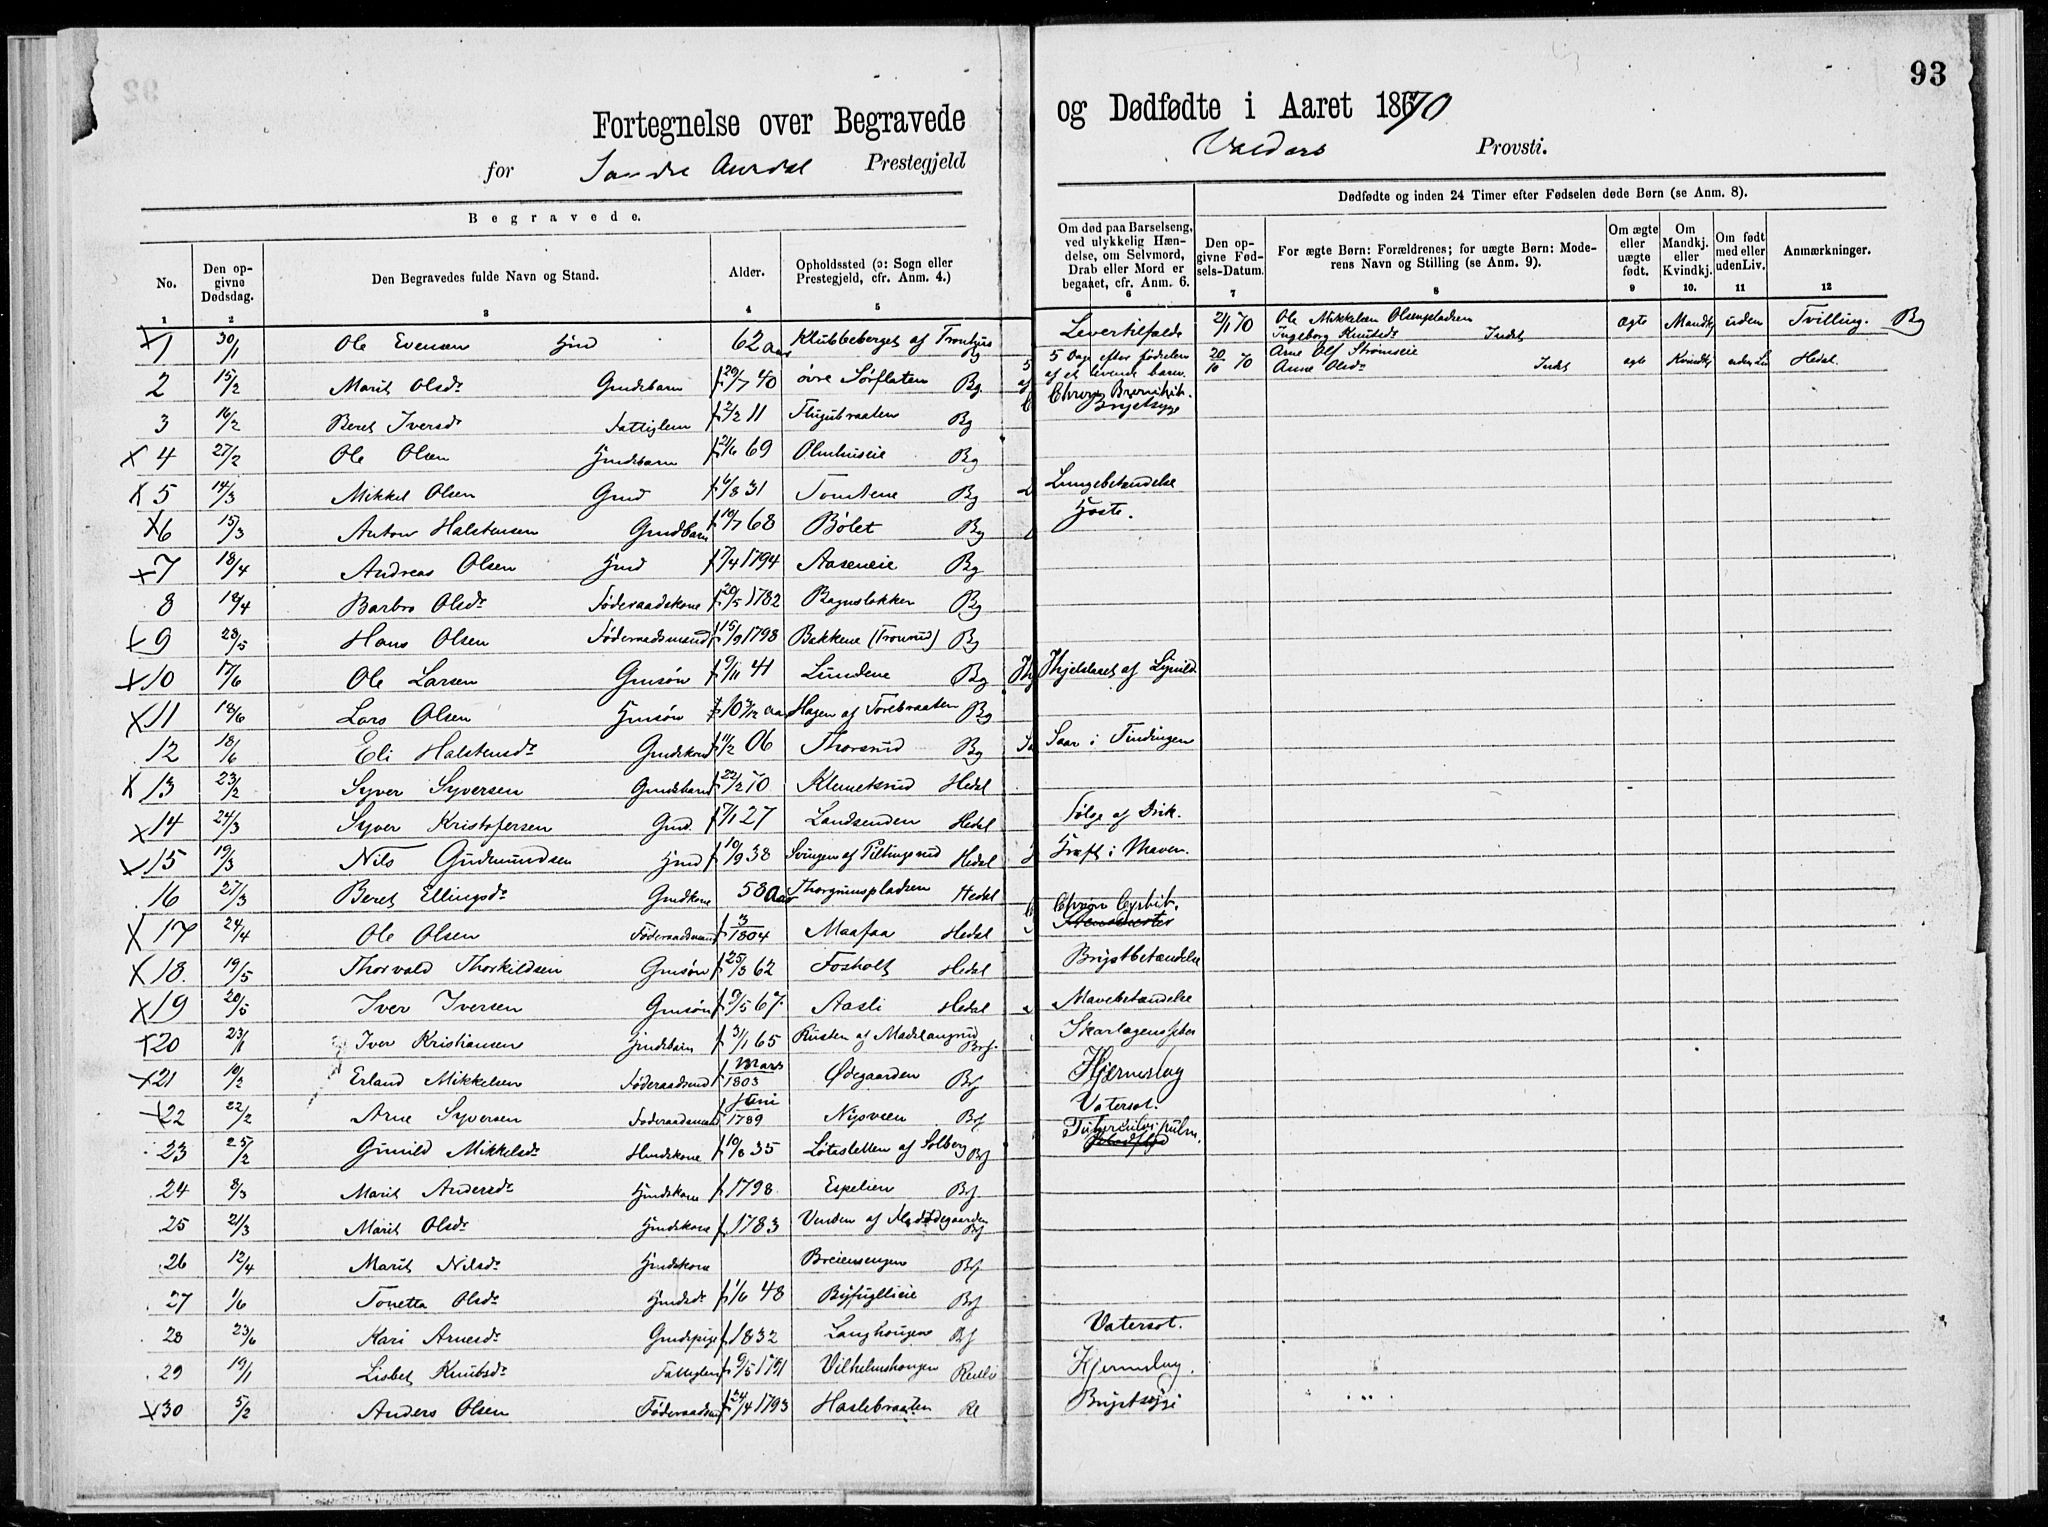 93
Fortegnelse over Begravede og Dødfødte i Aaret 1870
for Søndre Aurdal Prestegjeld Valders Provsti.
Begravede. Dødfødte og inden 24 Timer efter Fødselen døde Børn (se Anm. 8).
No. Den opgivne Dødsdag. Den Begravedes fulde Navn og Stand. Alder. Opholdssted (ɔ: Sogn eller Prestegjeld, cfr. Anm. 4.) Om død paa Barselseng, ved ulykkelig Hændelse, om Selvmord, Drab eller Mord er begaaet, cfr. Anm. 6. Den opgivne Fødsels-Datum. For ægte Børn: Forældrenes; for uægte Børn: Moderens Navn og Stilling (se Anm. 9). Om ægte eller uægte født. Om Mandkj. eller Kvindkj. Om født med eller uden Liv. Anmærkninger.
1 2 3 4 5 6 7 8 9 10. 11 12
X 1 30/1 Ole Evensen Hmd 62 aar Klubbeberget af Bg Levertilfælde 21/1 70 Ole Mikkelsen Olsenpladsen Ingeborg Knudsdr Indst ægte Mandkj uden Tvilling. Bg
2 15/2 Marit Olsdr Gmdsbarn f 29/7 40 øvre Sørflaten Bg 5 Dage efter fødselen af et levende barn. 20/10 70 Arne Ols Strømseie Anne Olsdr Indst ægte Kvindkj uden Liv Hedal.
3 16/2 Berit Iversdr Fattiglem f 2/2 11 Flugubraaten Bg Chron. Bronchit. Brystsyge
X 4 27/2 Ole Olsen Hmdsbarn f 21/6 69 Olmhuseie Bg
X 5 14/3 Mikkel Olsen Gmd f 6/8 31 Tomtene Bg Lungebetændelse
X 6 15/3 Anton Halstensen Gmdbarn f 19/7 68 Bølet Bg Hoste.
X 7 18/4 Andreas Olsen Hmd f 7/4 1794 Aaseneie Bg
8 18/4 Barbro Olsdr Føderaadskone f 20/5 1782 Bagnsløkken Bg
X 9 28/5 Hans Olsen Føderaadsmand f 15/9 1798 Bakkene (Tronrud) Bg
X 10 17/6 Ole Larsen Gmsøn f 9/11 41 Lundene Bg Ihjelslaaet af Lynild
X 11 18/6 Lars Olsen Hmsøn f 10 9/12 aar Hagen af Torebraaten Bg
12 18/6 Eli Halstensdr Gmdskone f 11/2 06 Thorsrud Bg Saar i Tindingen
X 13 23/2 Syver Syversen Gmdsbarn f 22/2 70 Klemetsrud Hedal
X 14 24/3 Syver Kristofersen Gmd. f 7/1 27 Landsenden Hedal Følge af Drik.
X 15 19/3 Nils Gudmundsen Hmd f 10/9 38 Svingen af Piltingsrud Hedal Kræft i Maven.
16 27/3 Berit Ellingsdr Gmdkone 58 aar Thorgrimspladsen Hedal Chron Cystit.
X 17 24/4 Ole Olsen Føderaadsmand f 3/1804 Maafaa Hedal
X 18. 19/5 Thorvald Thorkildsen Gmsøn f 25/3 62 Fosholt Hedal Brystbetændelse
X 19 20/5 Iver Iversen Gmsøn f 9/5 67. Aasli Hedal Mavebetændelse
X 20 23/1 Iver Kristiansen Hmdsbarn f 31/1 65 Rusten af Madslangrud Brf. Skarlagensfeber
X 21 10/3 Erland Mikkelsen Føderaadsmd f Mars 1803 Ødegaarden Brf Hjerneslag
X 22 22/2 Arne Syversen Føderaadsmand f Juni 1789 Nysveen Brf Vatersot.
23 25/2 Gunild Mikkelsdr Hmdskone f 10/8 35 Løtasletten af Solberg Brf Tuberculosis pulm.
24 8/3 Marit Andersdr Hmdskone f 1798. Espelien Brf.
25 21/3 Marit Olsdr Hmdskone f 1783 Venden af Ødegaarden Brf
26 12/4 Marit Nilsdr Hmdskone Breiensengen Brf
27 1/6 Tonetta Olsdr Hmdsdr f 1/6 48 Byfuglleie Brf
28 23/6 Kari Arnesdr Gmdspige f 1832 Langhougen Brf Vatersot.
29 19/1 Lisbet Knudsdr Fattiglem f 9/5 1791 Vilhelmshougen Reinli Hjerneslag.
X 30 5/2 Anders Olsen Føderaadsm f 24/4 1793 Haslebraaten Re Brystsyge